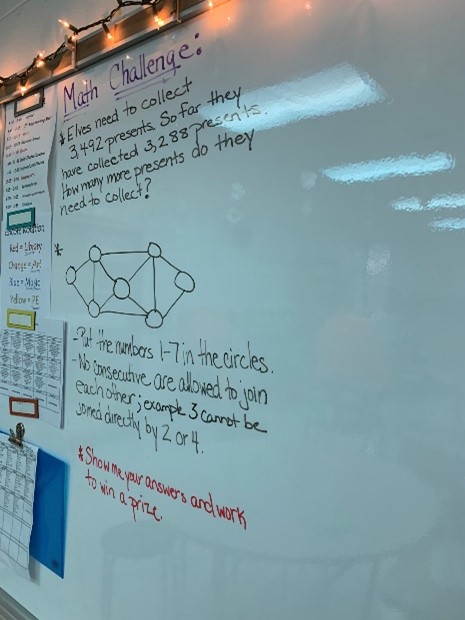 Math Challenge:
* Elves need to collect
3,492 presents. So far they
have collected 3,288 presents.
How many more presents do they
need to collect?
*
-Put the numbers 1-7 in the circles.
-No consecutive are allowed to join
each other; example 3 cannot be
joined directly by 2 or 4.
* Show me your answers and work
to win a prize.
Rotation
Red = Library
Orange = Art
Blue = Music
Yellow = PE